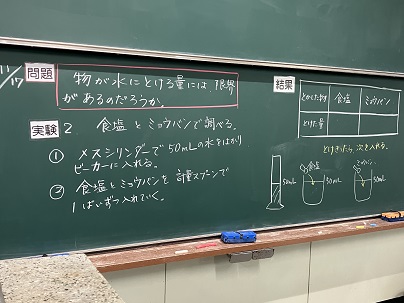 11/17
問題
物が水にとける量には 限界
があるのだろうか。
実験 2 食塩とミョウバンで調べる。
① メスシリンダーで50mLの水をはかり
ビーカーに入れる。
② 食塩とミョウバンを計量スプーンで
1ぱいずつ入れていく。
結果
とかした物 食塩 ミョウバン
とけた量
とけきったら、次を入れる。
食塩 ミョウバン
50mL 50mL 50mL